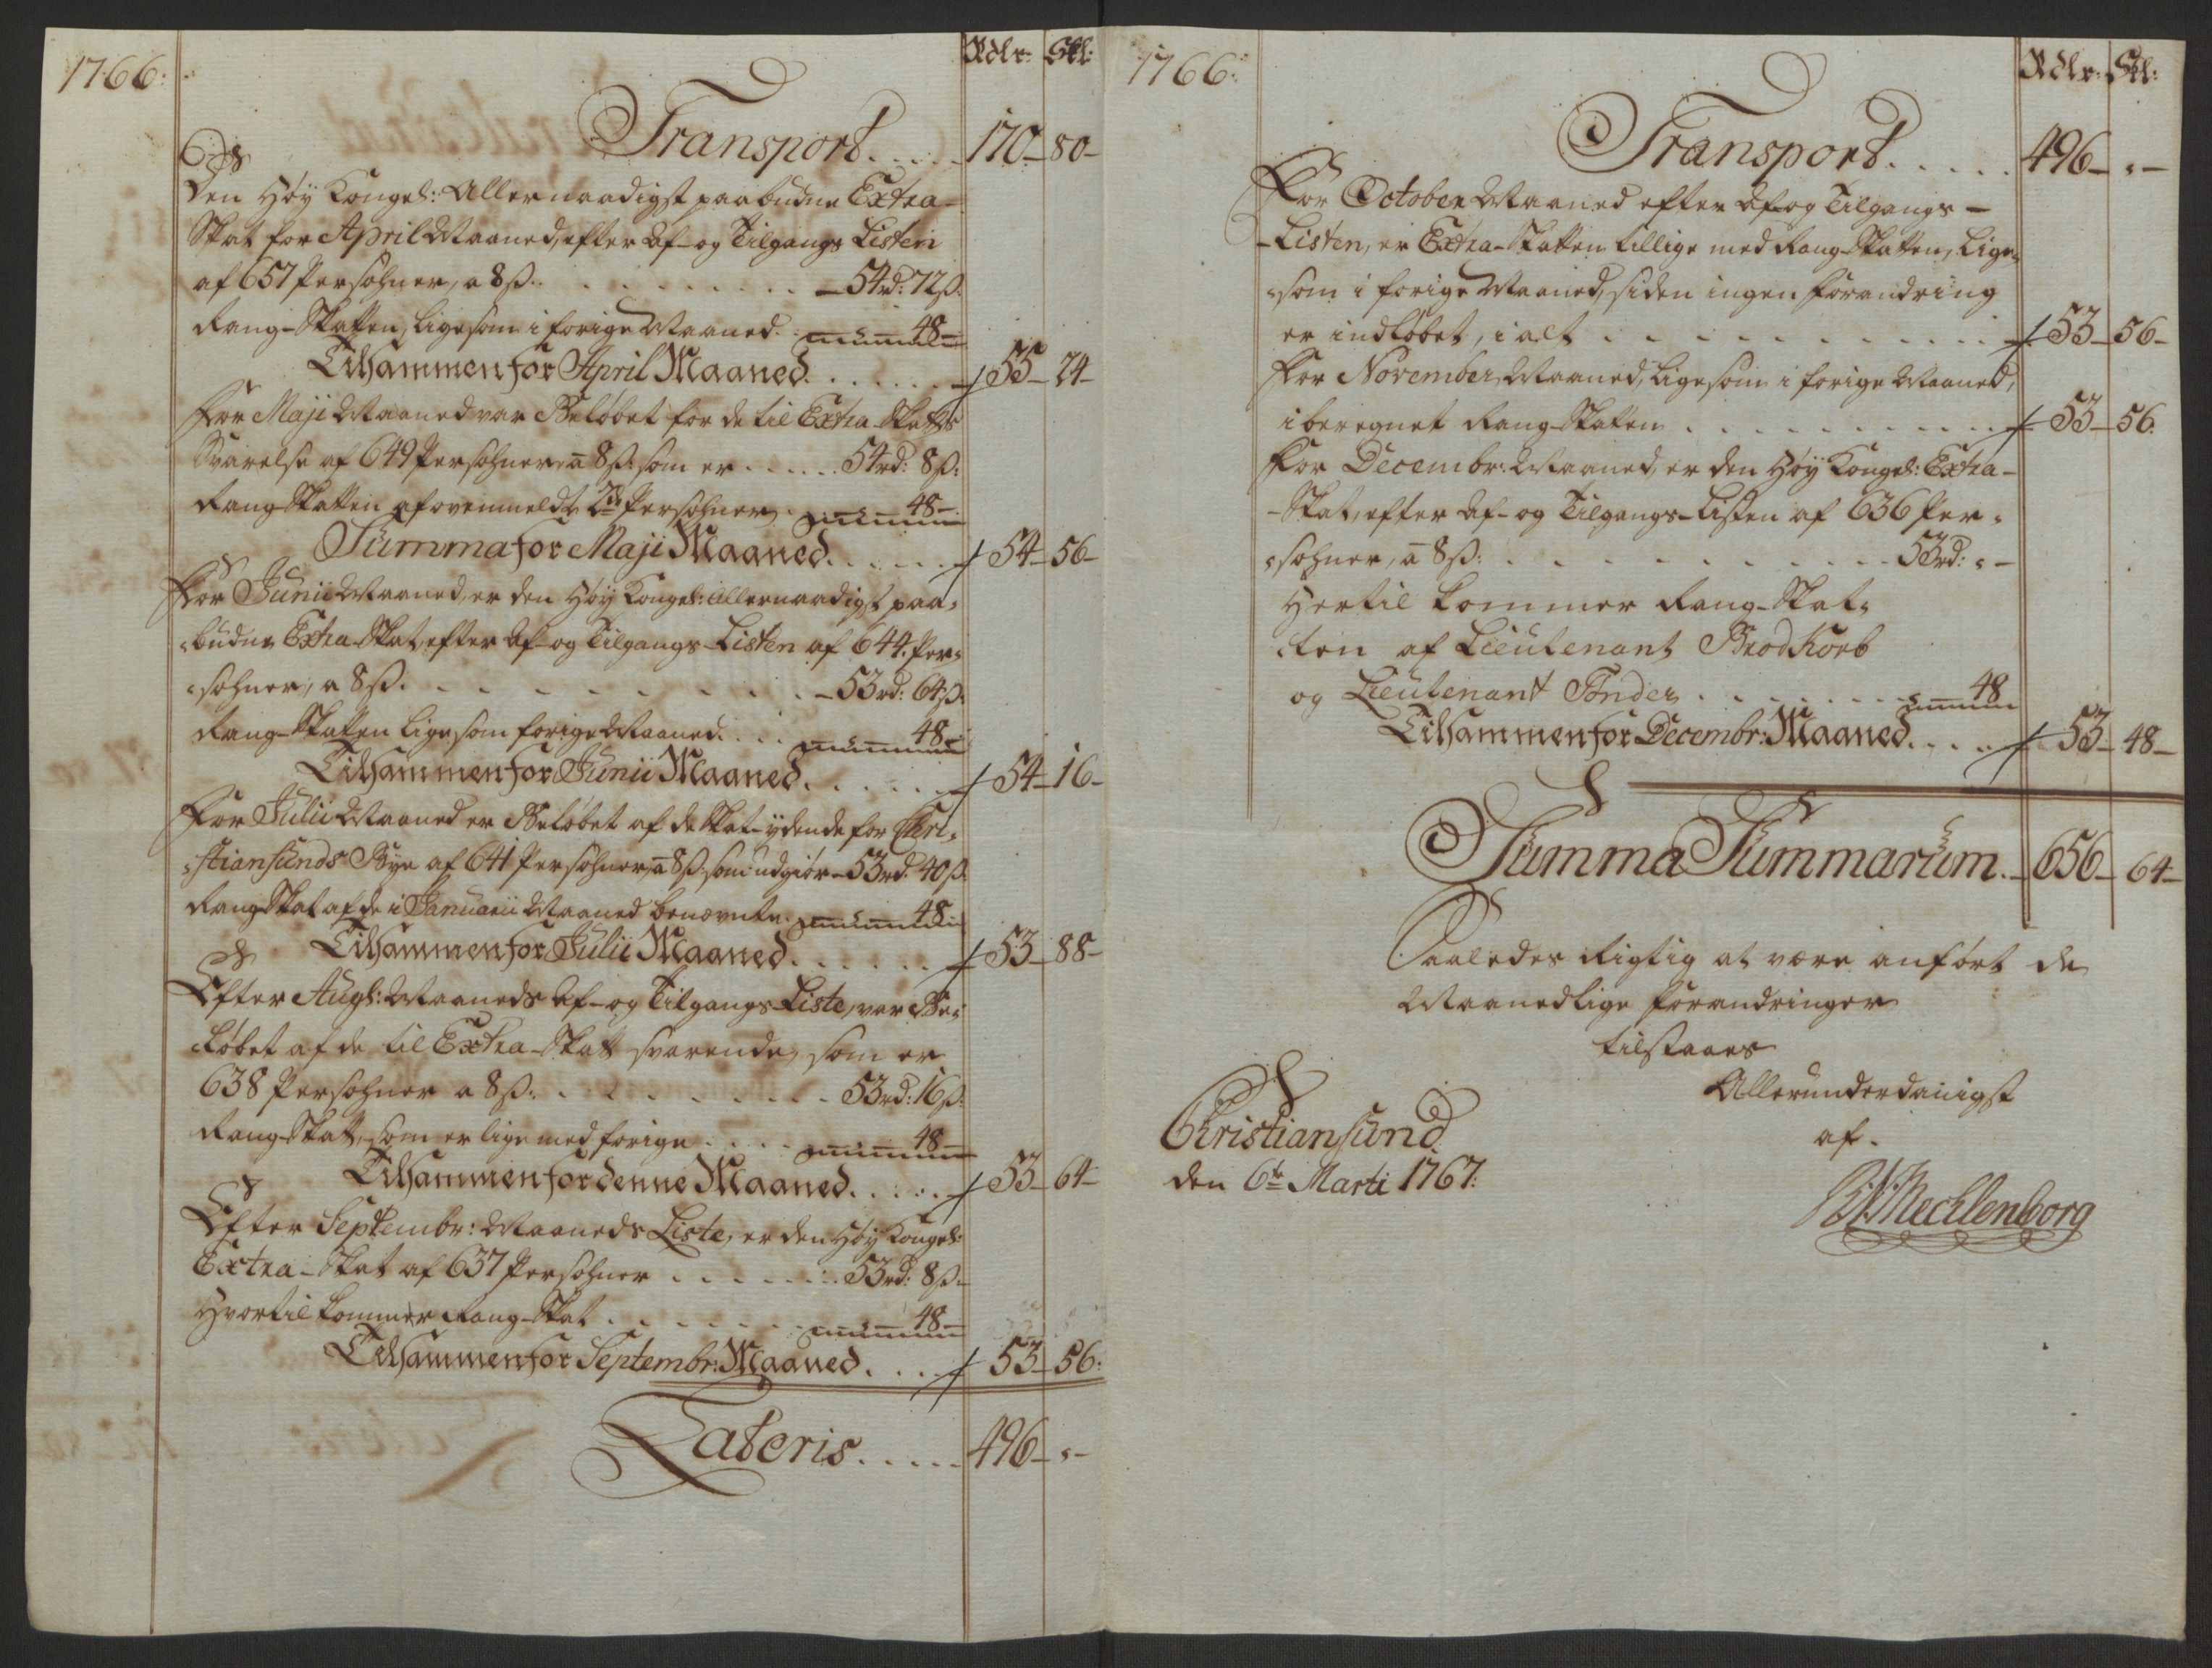 1766:
Rdlr: Skl:
Transport. . . . . 170 - 80 -
Den Høy Kongel: Allernaadigst paabudne Extra-
Skat for April Maaned, efter Af- og Tilgangs Listen
af 657 Persohner, a 8 ß. . . . . . . . . . - 54rd: 72ß.
Rang-Skatten, ligesom i forige Maaned. . 48 -
Tilsammen for April Maaned. . . . . . . 55 - 24 -
For Maji Maaned var Beløbet for de til Extra-Skatts
Svarelse af 649 Persohner, a 8ß: som er . . . . . 54rd: 8ß:
Rang-Skatten af ovenmeldte 2de Persohner . 48 -
Summa for Maji Maaned. . . . . . 54 - 56 -
For Junii Maaned, er den Høy Kongel: Allernaadigst paa-
-budne Extra-Skat, efter Af- og Tilgangs-Listen af 644. Per-
-sohner, a 8ß. . . . . . . . . . . - 53rd: 64ß:
Rang-Skatten ligesom forige Maaned. . . . 48 -
Tilsammen for Junii Maaned. . . . . . . 54 - 16 -
For Julii Maaned er Beløbet af de Skat-ydende for Chri-
-stiansunds Bye af 641 Persohner, a 8ß. som udgiør - 53rd. 40ß.
Rang-Skat af de i Januarii Maaned benævnte. 48 -
Tilsammen for Julii Maaned. . . . . . . 53 - 88 -
Efter Augs: Maaneds Af- og Tilgangs-Liste, var Be-
-løbet af de til Extra-Skatt svarende, som er
638 Persohner a 8ß: . . . . . . . . . 53rd: 16ß:
Rang-Skatt, som er lige med forige . . . . 48 -
Tilsammen for denne Maaned. . . . . . 53 - 64 -
Efter Septembr: Maaneds Liste, er den Høy Kongel:
Extra-Skat af 637 Persohner . . . . . . . 53rd: 8ß -
Hvortil kommer Rang-Skat . . . . . . . 48 -
Tilsammen for Septembr: Maaned. . . . 53 - 56:
Lateris. . . . . 496 - " -
1766:
Rdlr: Skl:
Transport. . . . . 496 - " -
For October Maaned efter Af- og Tilgangs-
-Listen, er Extra-Skatten tillige med Rang-Skatten, lige-
-som i forige Maaned, siden ingen forandring
er indløbet, i alt . . . . . . . . . . . . . 53 - 56 -
For November Maaned, ligesom i forige Maaned,
iberegnet Rang-Skatten . . . . . . . . . . . 53 - 56.
For Decembr: Maaned, er den Høy Kongel: Extra-
-Skat, efter Af- og Tilgangs-Listen af 636 Per-
-sohner, a 8ß: . . . . . . . . . . - 53rd: " -
Hertil kommer Rang-Skat-
-ten af Lieutenant Brodkorb
og Lieutenant Tønder . . . . . . . . 48
Tilsammen for Decembr: Maaned. . . . . 53 - 48 -
Summa Summarum. - 656 - 64 -
Saaledes Rigtig at være anført de
Maanedlige forandringer
tilstaaes
Allerunderdanigst
af.
Christiansund
den 6te Marti 1767:
Mechlenborg